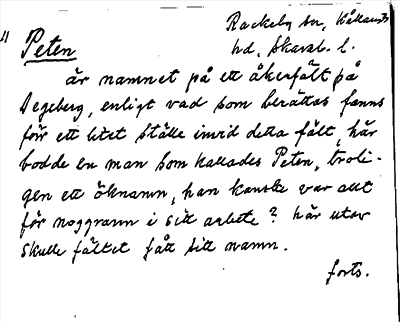 Rackeby sn, Kållands
" Peten
hd, Skarab. l.
är namnet på ett åkerfält på
Degeberg, enligt vad som berättas fanns
förr ett litet ställe invid detta fält, här
bodde en man som kallades Peten, troli-
gen ett öknamn, han kanske var allt
för noggrann i sitt arbete? härutav
skulle fältet fått sitt namn.
forts.